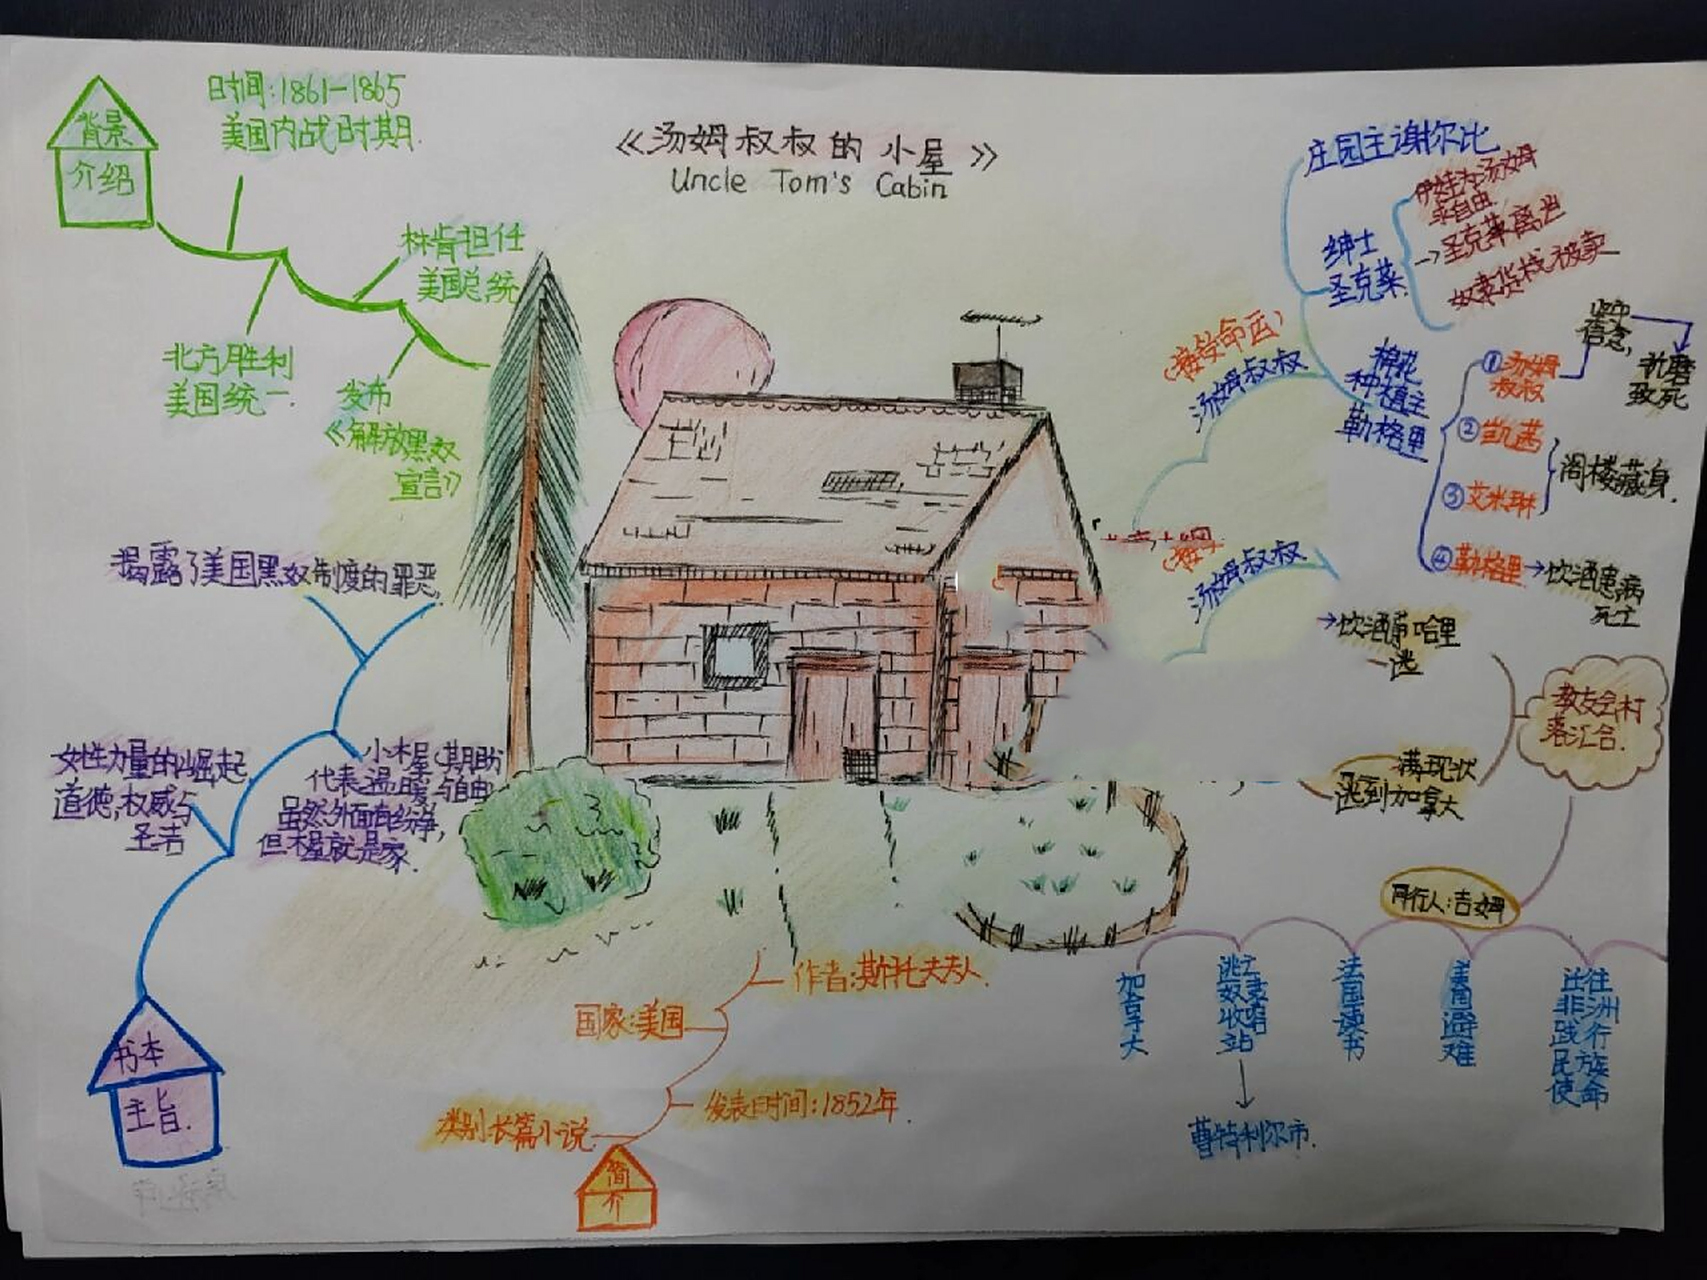 《汤姆叔叔的小屋》
Uncle Tom's Cabin
背景
介绍
时间:1861-1865
美国内战时期.
林肯担任
美国总统
北方胜利
美国统一.
发布
《解放黑奴
宣言》
揭露了美国黑奴制度的罪恶,
女性力量的崛起
道德,权威与
圣洁
小木屋(期盼
代表温暖与自由
虽然外面有纷争,
但木屋就是家.
书本
主旨.
作者:斯托夫夫人
国家:美国
发表时间:1852年.
类别长篇小说
简
介
庄园主谢尔比
绅士
圣克莱.
伊娃为汤姆
求自由
→圣克莱离世
被卖
(接受命运)
汤姆叔叔
棉花
种植主
勒格里
①汤姆
叔叔
坚守
信念,
折磨
致死
②凯茜
③艾米琳
阁楼藏身.
④勒格里→饮酒患病
死亡
汤姆叔叔
→饮酒 哈里
逃
教友会村
落汇合.
满现状
逃到加拿大
同行人:吉姆
加拿大
逃亡奴隶收容站
曹特利尔市.
法国读书
美国避难
迁往非洲践行民族使命